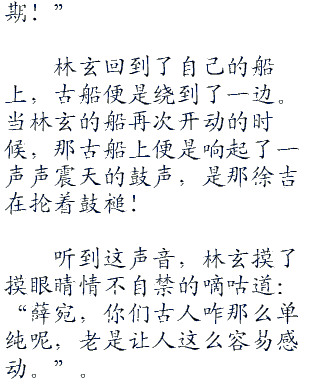 期！”
林玄回到了自己的船
上，古船便是绕到了一边。
当林玄的船再次开动的时
候，那古船上便是响起了一
声声震天的鼓声，是那徐吉
在抡着鼓槌！
听到这声音，林玄摸了
摸眼睛情不自禁的嘀咕道：
“薛宛，你们古人咋那么单
纯呢，老是让人这么容易感
动。”。